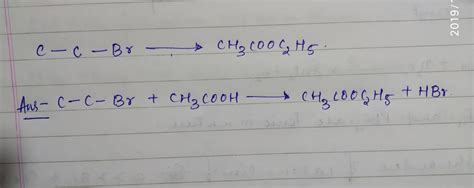 C - C - Br ⟶ CH₃COOC₂H₅.
Ans - C - C - Br + CH₃COOH ⟶ CH₃COOC₂H₅ + HBr.
2019/